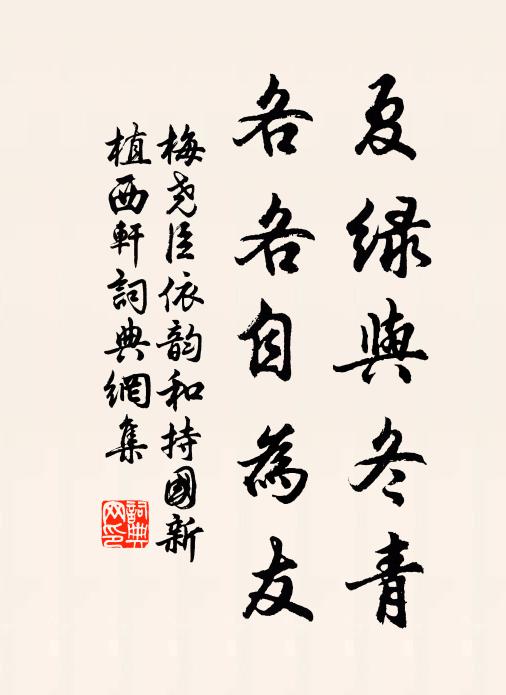 夏绿與冬青
各各自為友
梅尧臣依韵和持國新
植西軒詞典網集
詞典网印